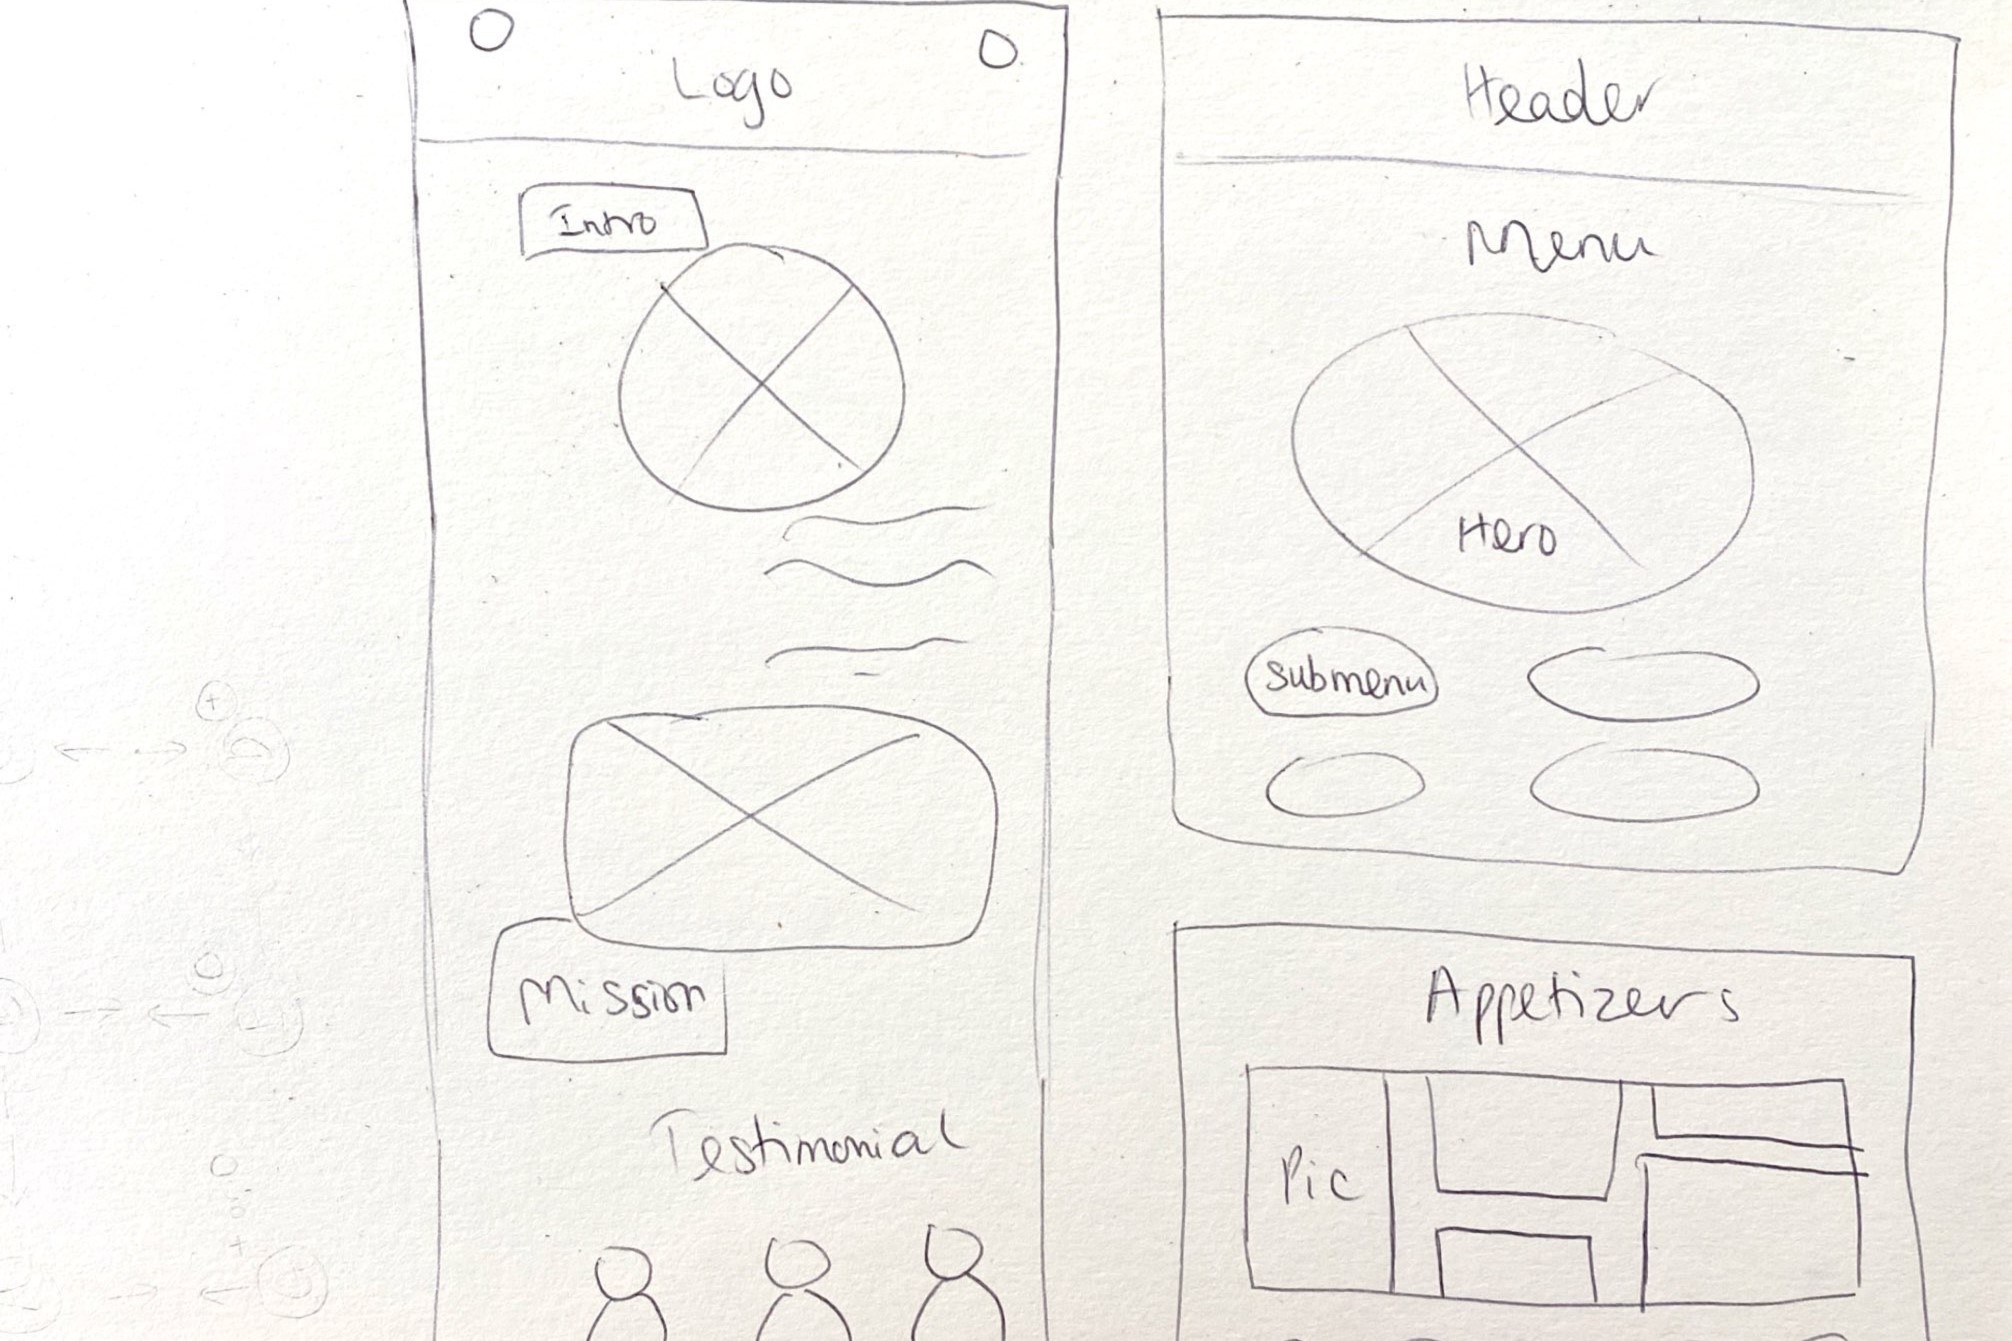 Logo
Intro
Mission
Testimonial
Header
Menu
Hero
submenu
Appetizers
Pic